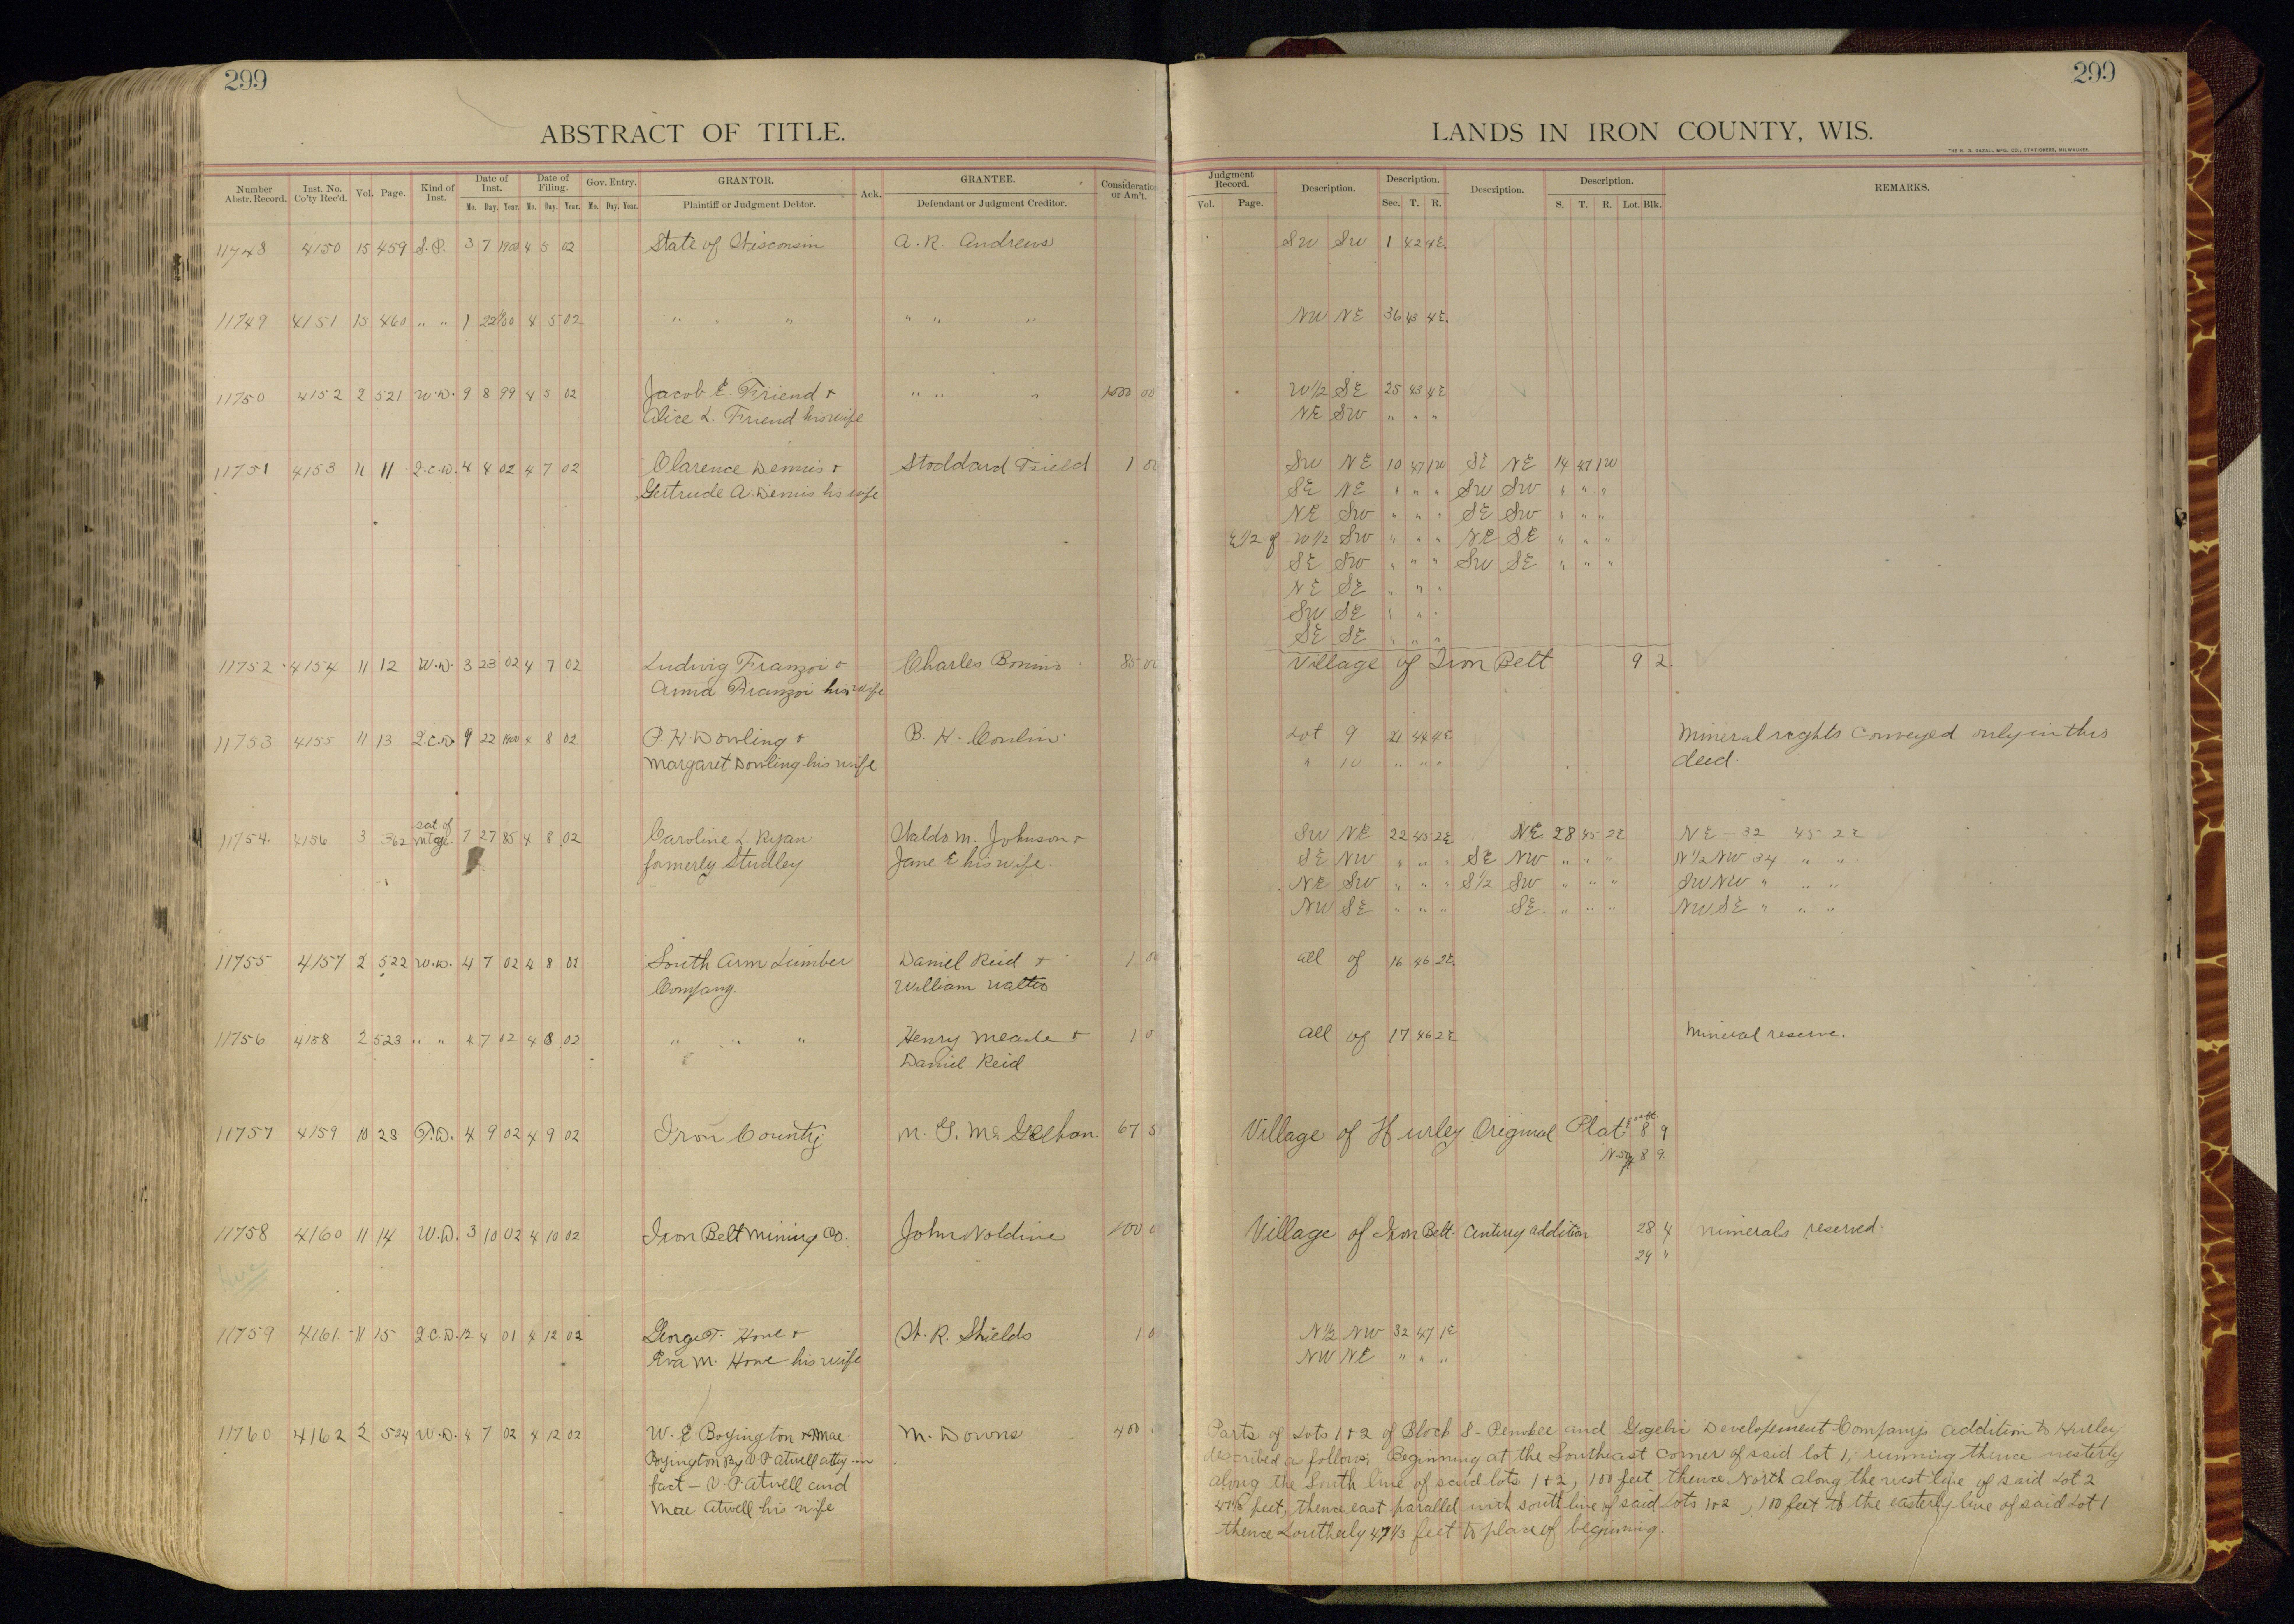 299
299
ABSTRACT OF TITLE.
LANDS IN IRON COUNTY, WIS.
Number Abstr. Record. Inst. No. Co'ty Rec'd. Vol. Page. Kind of Inst. Date of Inst. Mo. Day. Year. Date of Filing. Mo. Day. Year. Gov. Entry. Mo. Day. Year. GRANTOR. Plaintiff or Judgment Debtor. Ack. GRANTEE. Defendant or Judgment Creditor. Consideration or Am't.
Judgment Record. Vol. Page. Description. Description. Sec. T. R. Description. Description. S. T. R. Lot. Blk. REMARKS.
11748 4150 15 459 S.P. 3 7 1900 4 5 02 State of Wisconsin A. R. Andrews SW SW 1 42 4E.
11749 4151 15 460 " " 1 22 4 5 02 " " " " " " NW NE 36 43 4E.
11750 4152 2 521 W.D. 9 8 99 4 5 02 Jacob E. Friend & " " " 00 W1/2 SE 25 43 4E
Alice L. Friend his wife NE SW " " "
11751 4153 11 11 Q.C.D. 4 4 02 4 7 02 Clarence Dennis & Stoddard Field 1 00 SW NE 10 47 1W SE NE 14 47 1W
Gertrude A. Dennis his wife SE NE " " " SW SW " " "
NE SW " " " SE SW " " "
E 1/2 of W1/2 SW " " " NE SE " " "
SE SW " " " SW SE " " "
NE SE " " "
SW SE " " "
SE SE " " "
11752 4154 11 12 W.D. 3 23 02 4 7 02 Ludwig Franzoi & Charles Bonino 85 00 Village of Iron Belt 9 2.
Anna Franzoi his wife
11753 4155 11 13 Q.C.D. 9 22 1900 4 8 02 P. H. Dowling & B. H. Conlin Lot 9 21 44 4E Mineral rights conveyed only in this
Margaret Dowling his wife " 10 " " " deed.
11754. 4156 3 362 sat. of mtge. 7 27 85 4 8 02 Caroline L. Ryan Waldo M. Johnson & SW NE 22 45 2E NE 28 45 2E NE - 32 45 2E
formerly Studley Jane E his wife. SE NW " " " SE NW " " " N1/2 NW 34 " "
NE SW " " " S1/2 SW " " " SW NW " " "
NW SE " " " SE. " " " NW SE " " "
11755 4157 2 522 W.D. 4 7 02 4 8 02 South Arm Lumber Daniel Reid & 1 00 all of 16 46 2E.
Company. William
11756 4158 2 523 " " 4 7 02 4 8 02 " " " Henry Meade & 1 00 all of 17 46 2E Mineral reserve.
Daniel Reid
11757 4159 10 28 T.D. 4 9 02 4 9 02 Iron County 67 5 Village of Hurley Original Plat 8 9
8 9.
11758 4160 11 14 W.D. 3 10 02 4 10 02 Iron Belt Mining Co. John Noldine 100 Village of Iron Belt. Century addition 28 4 minerals reserved.
29 "
11759 4161 11 15 Q.C.D. 12 4 01 4 12 02 George T. Howe & W. R. Shields 1 0 N1/2 NW 32 47 1E
Eva M. Howe his wife NW NE " " "
11760 4162 2 524 W.D. 4 7 02 4 12 02 W. E. Boyington & Mae M. Downs 400 Parts of Lots 1 & 2 of Block 8 - Penokee and Gogebic Developement Companys addition to Hurley
Boyington By V. P. Atwell atty in described as follows; Beginning at the Southeast corner of said lot 1, running thence westerly
fact - V. P. Atwell and along the South line of said lots 1 & 2, 100 feet thence North along the west line of said Lot 2
Mae Atwell his wife feet, thence east parallel with south line of said Lots 1 & 2, 100 feet to the easterly line of said Lot 1
thence Southerly 47 1/3 feet to place of beginning.